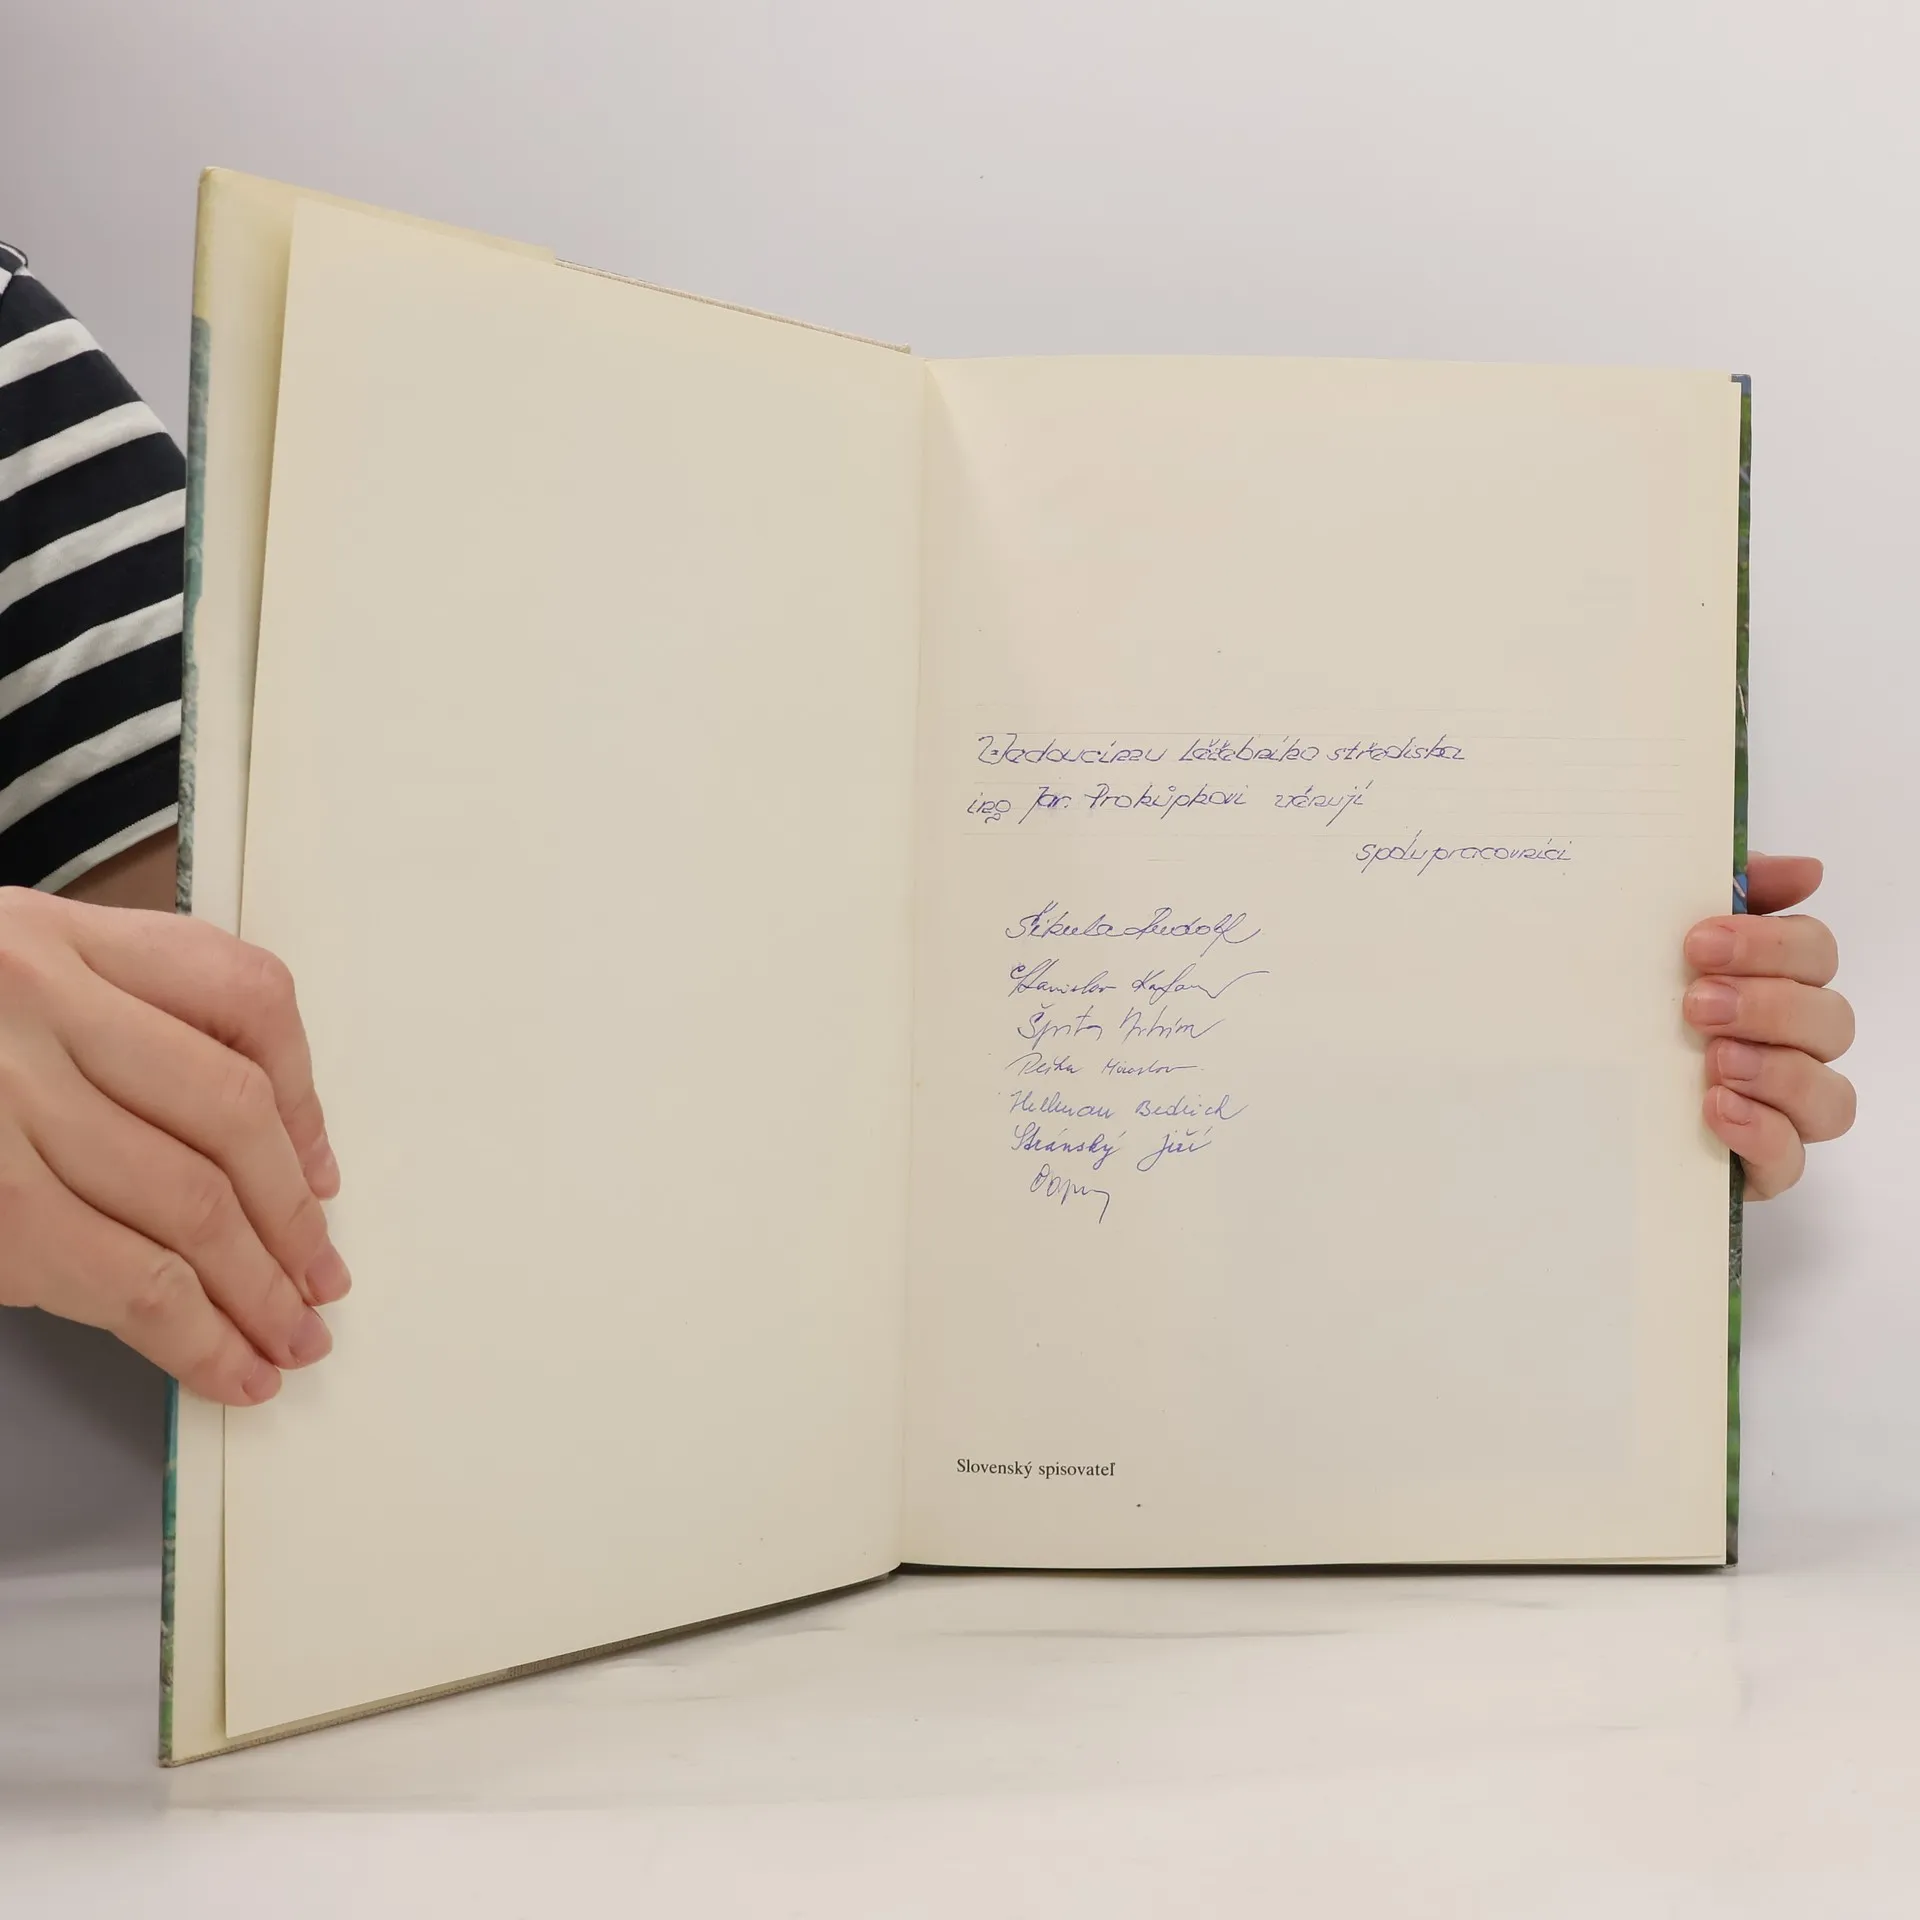 Vedoucímu léčebního střediska
ing Jar. Prokůpkovi věnují
spolupracovníci
Šikula Rudolf
Stanislav
Miroslav
Hellman Bedřich
Stránský Jiří
Slovenský spisovateľ